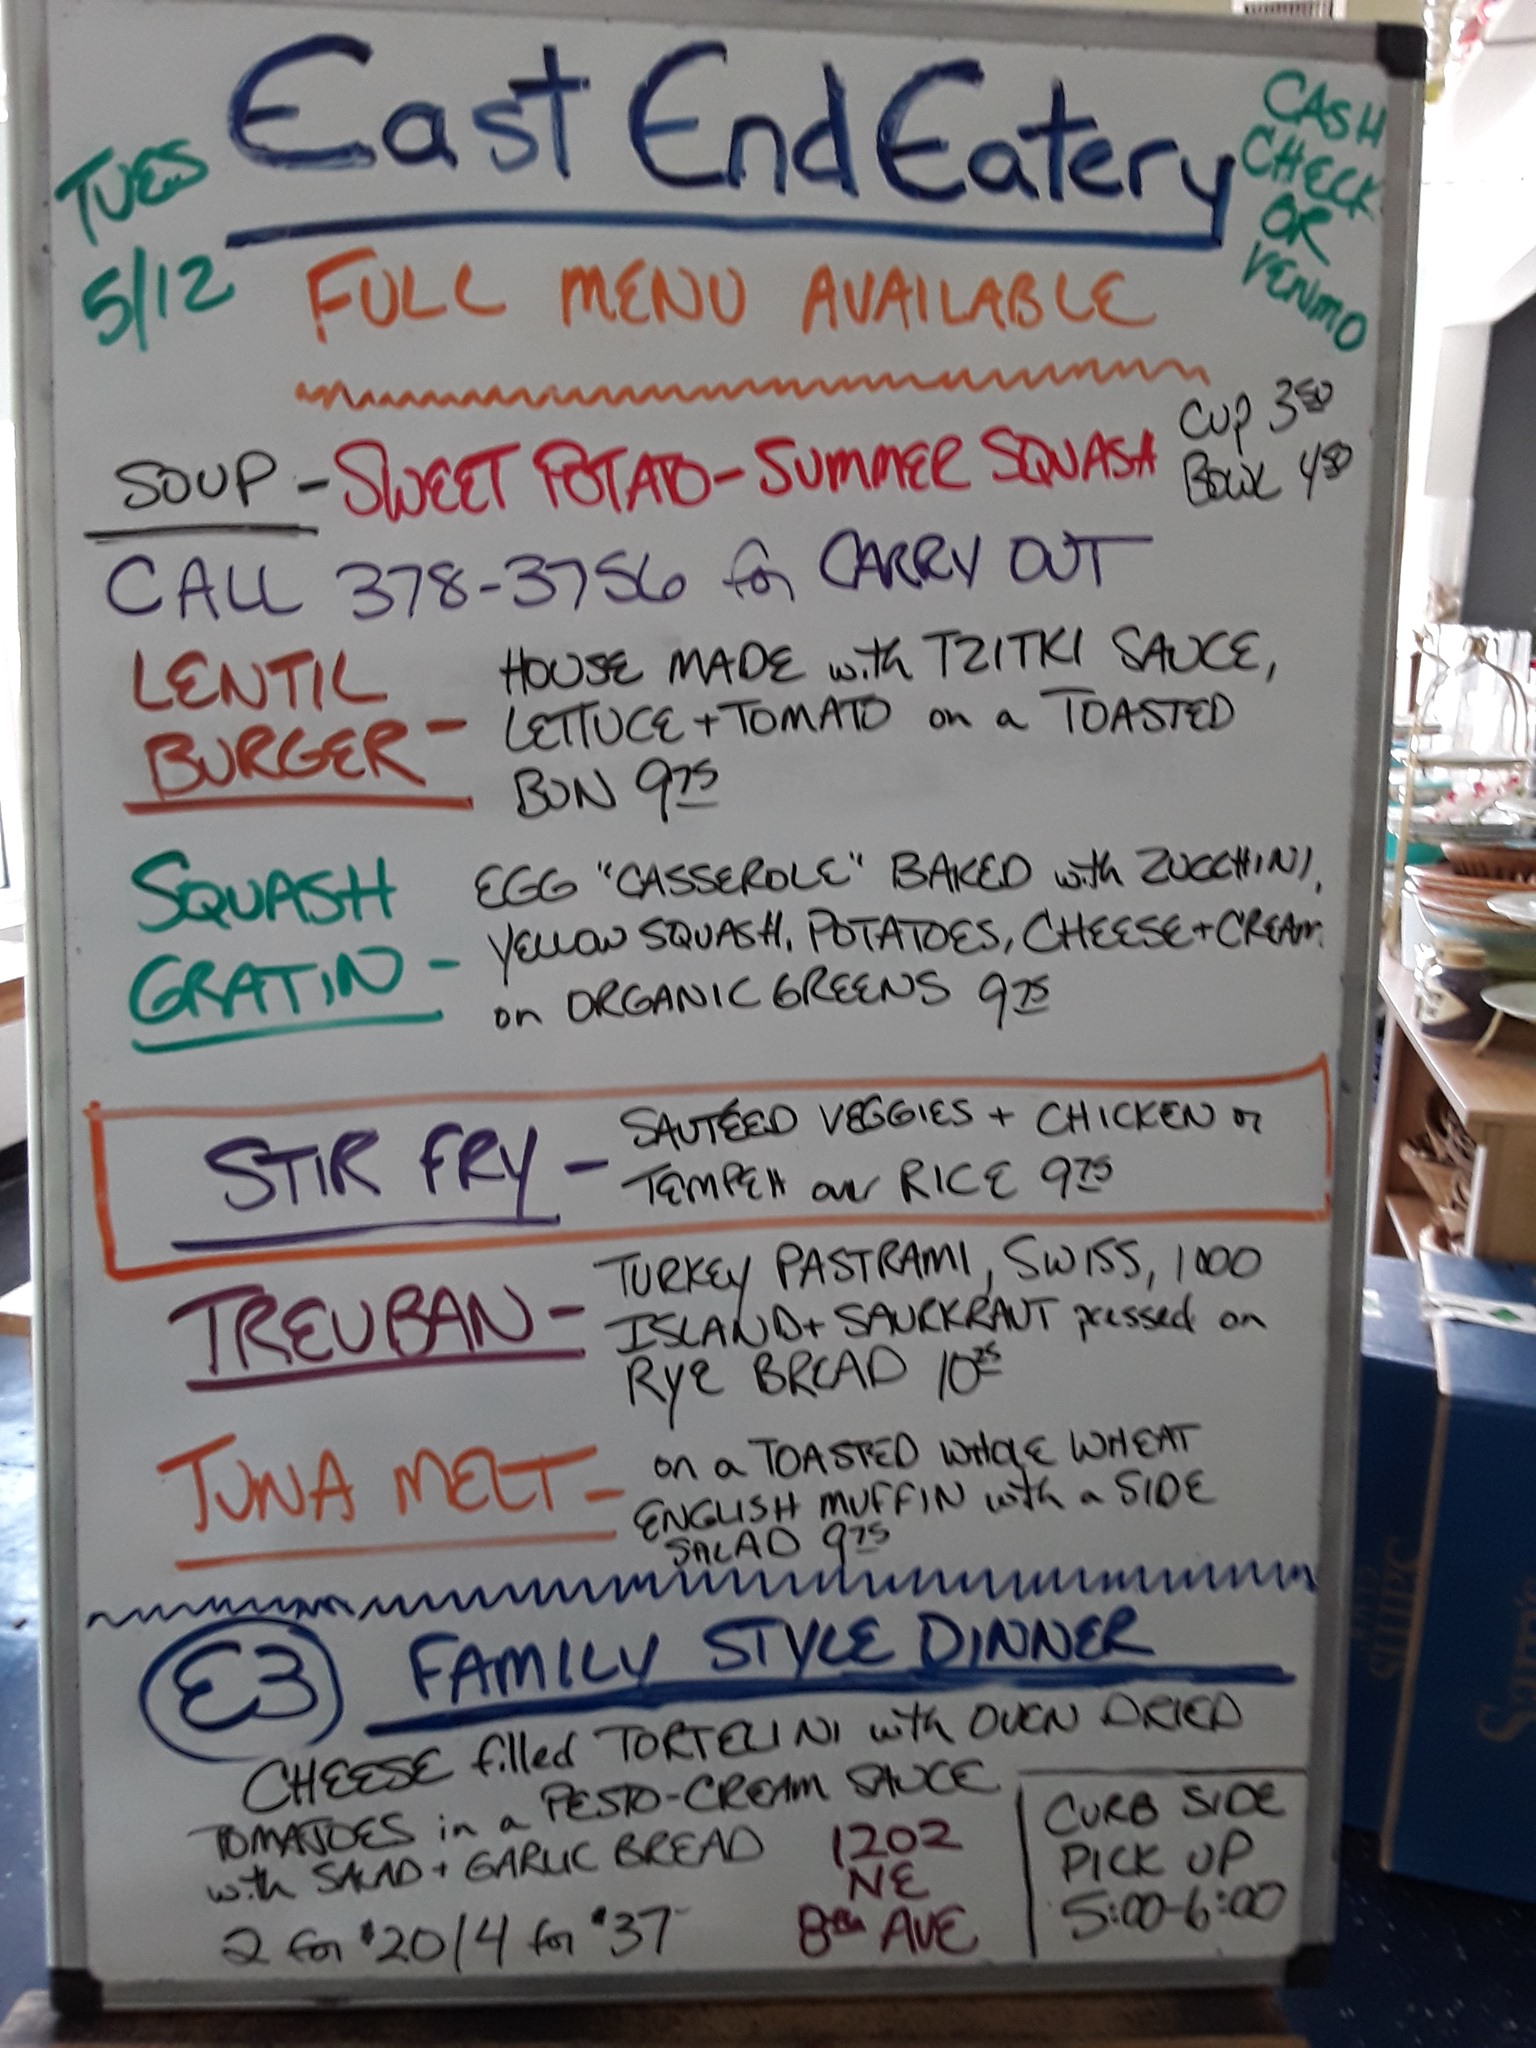 East End Eatery
TUES
5/12
CASH
CHECK
OR
VENMO
FULL MENU AVAILABLE
SOUP - SWEET POTATO - SUMMER SQUASH
CUP 3.50
BOWL 4.50
CALL 378-3756 for CARRY OUT
LENTIL
BURGER -
HOUSE MADE with TZITKI SAUCE,
LETTUCE + TOMATO on a TOASTED
BUN 9.75
SQUASH
GRATIN -
EGG "CASSEROLE" BAKED with ZUCCHINI,
YELLOW SQUASH, POTATOES, CHEESE + CREAM
on ORGANIC GREENS 9.75
STIR FRY -
SAUTÉED VEGGIES + CHICKEN or
TEMPEH over RICE 9.75
TREUBAN -
TURKEY PASTRAMI, SWISS, 1000
ISLAND + SAURKRAUT pressed on
RYE BREAD 10.25
TUNA MELT -
on a TOASTED WHOLE WHEAT
ENGLISH MUFFIN with a SIDE
SALAD 9.75
E3 FAMILY STYLE DINNER
CHEESE filled TORTELINI with OVEN DRIED
TOMATOES in a PESTO-CREAM SAUCE
with SALAD + GARLIC BREAD
2 for $20/4 for $37
1202
NE
8th AVE
CURB SIDE
PICK UP
5:00-6:00